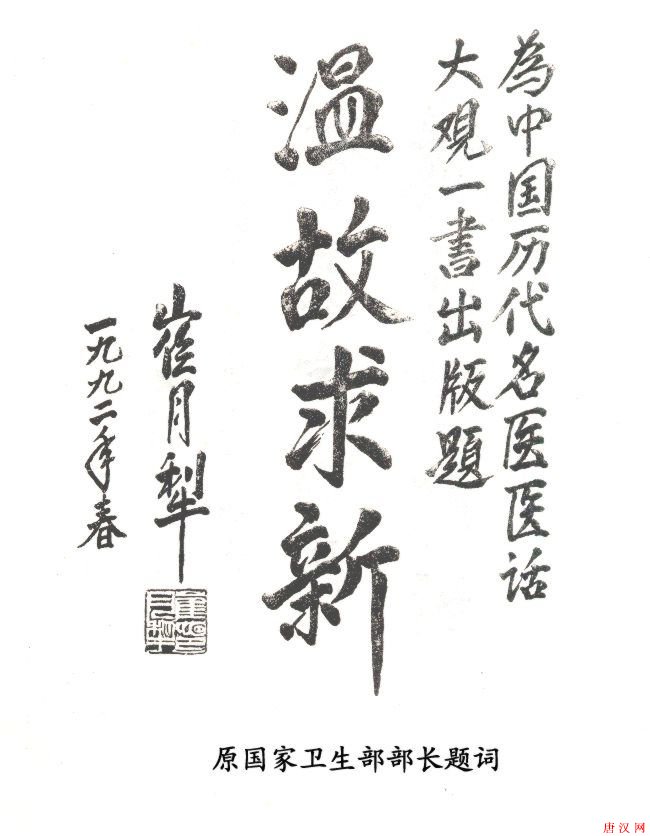 為中国历代名医医话
大观一書出版題
温故求新
崔月犁
一九九二年春
原国家卫生部部长题词
唐汉网